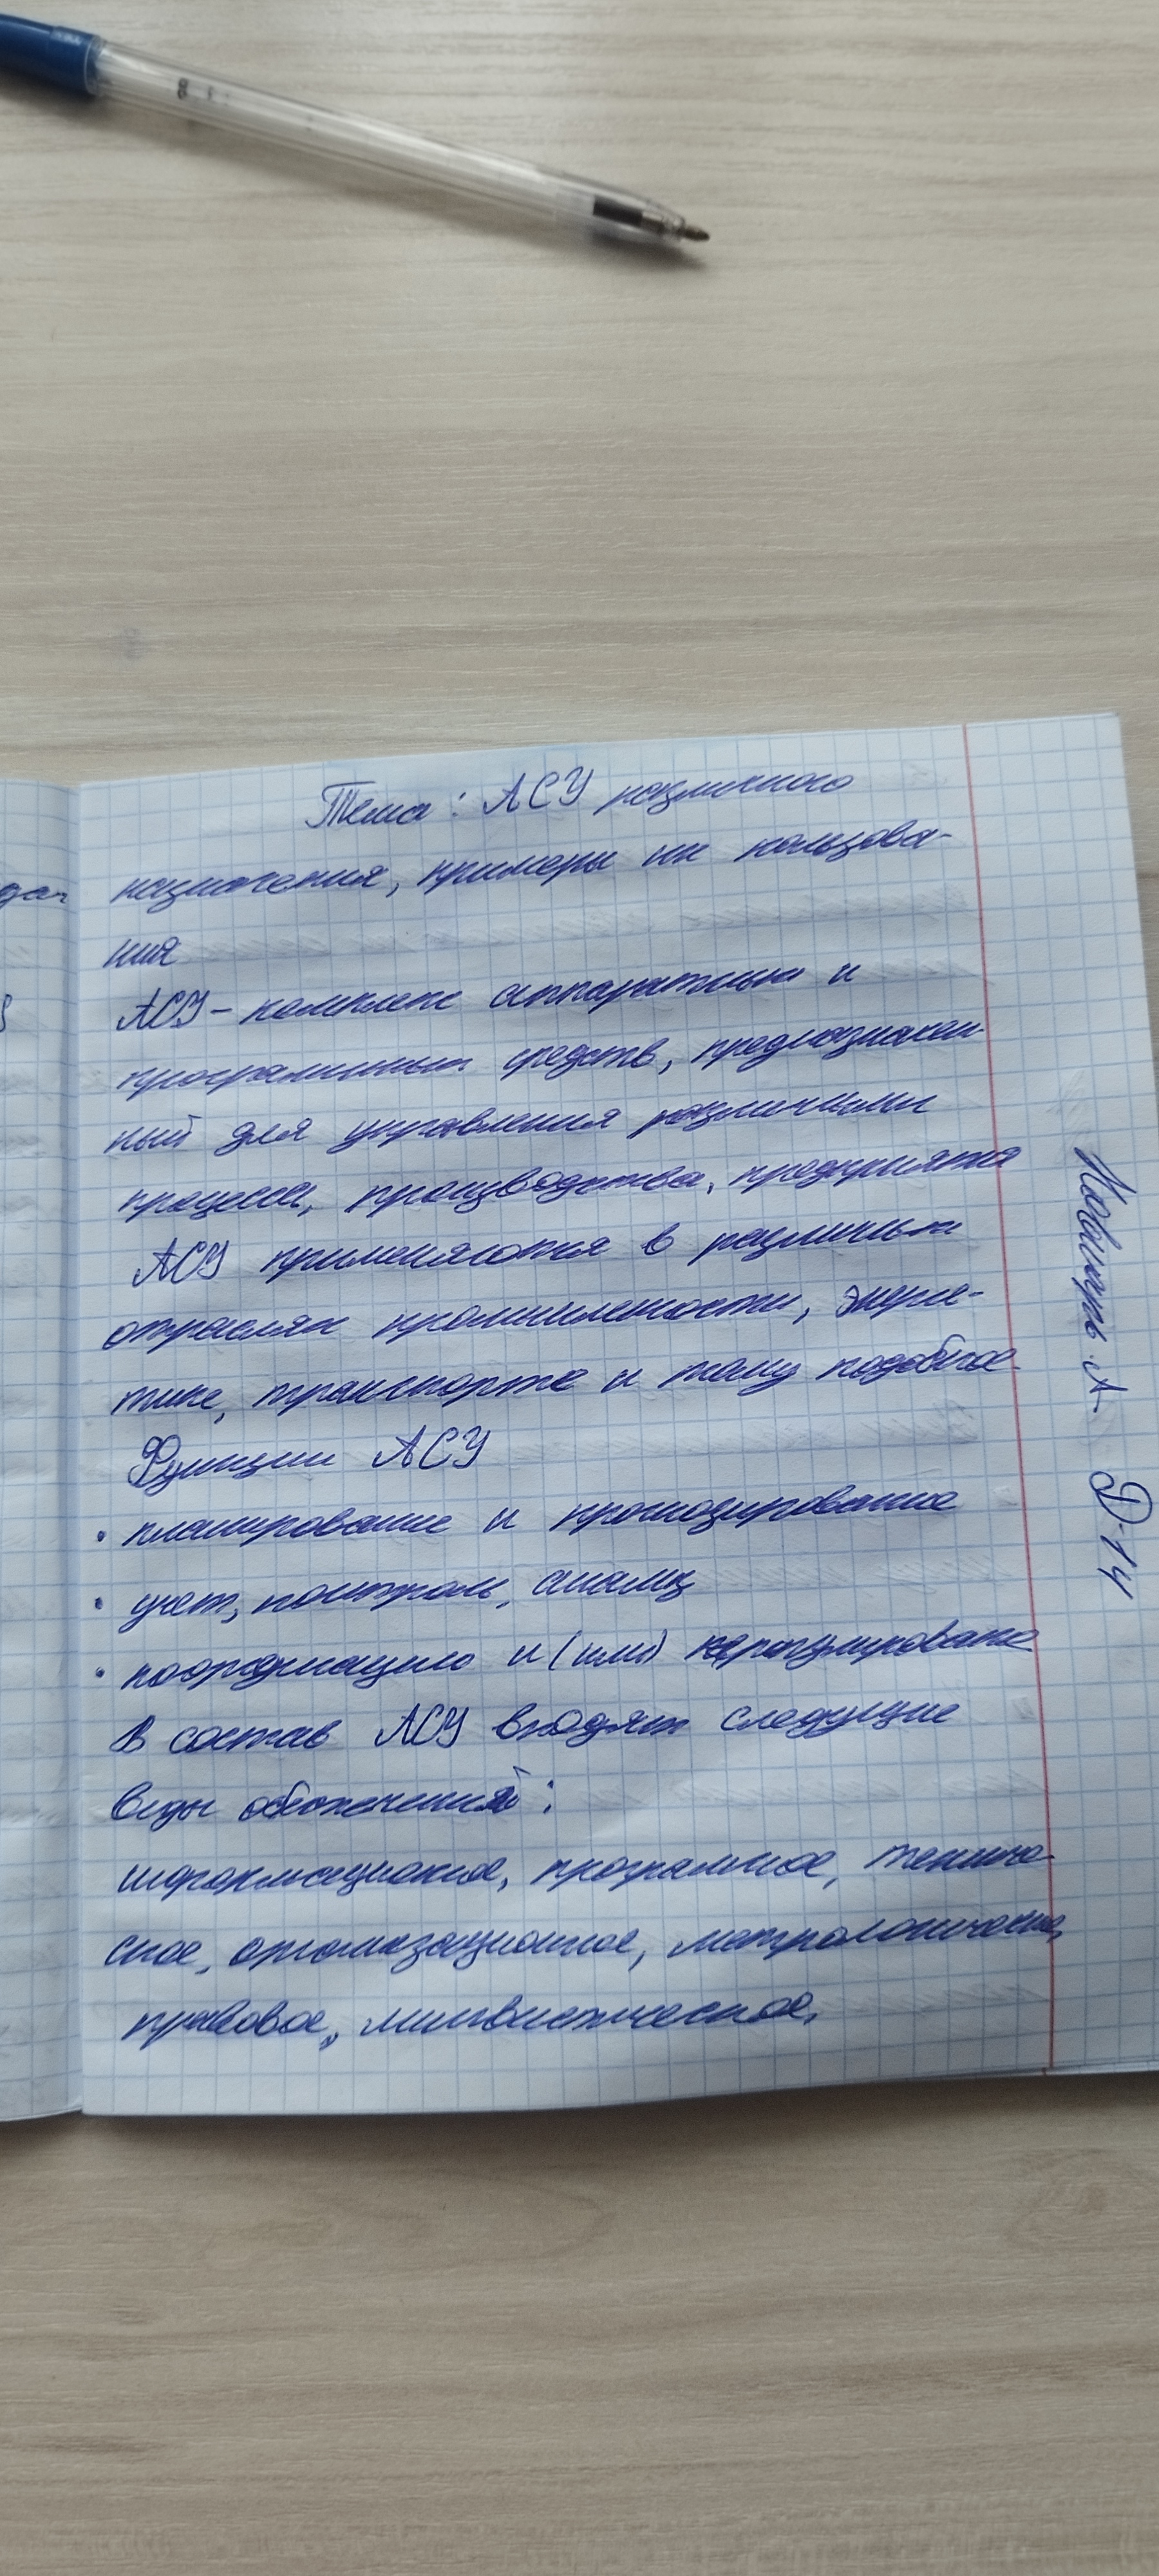 Тема: АСУ различного
назначения, примеры их пользова-
ния
АСУ - комплекс аппаратных и
программных средств, предназначен-
ный для управления различными
процесса, производства, предприятия
АСУ применяются в различных
отраслях промышленности, энерге-
тике, транспорте и тому подобное
Функции АСУ
• планирование и прогнозирование
• учет, контроль, анализ
• координацию и (или)
В состав АСУ входят следущие
виды обеспечений:
информационное, програмное, техниче-
ское, организационное, метрологическое,
правовое, лингвистическое.
А Д-14